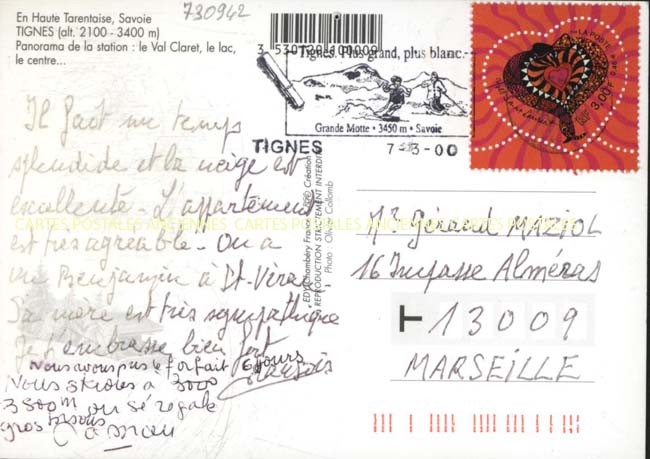 730942
En Haute Tarentaise, Savoie
TIGNES (alt. 2100 - 3400 m)
Panorama de la station : le Val Claret, le lac,
le centre...
3 530120 110009
Tignes. Plus grand, plus blanc.
Grande Motte • 3450 m • Savoie
TIGNES
7-3-00
LA POSTE
3,00F
RF
Yves Saint Laurent
Il fait un temps
splendide et la neige est
excellente. L'appartement
est très agréable. On a
un Benjamin à St-Véran
Sa mère est très sympathique
Je t'embrasse bien fort
Nous avons pris le forfait 6 jours
Nous skions à 3000
3500m on se régale
gros bisous
EDY Chambéry France
REPRODUCTION STRICTEMENT INTERDITE
Photo : Collomb
CARTES POSTALES ANCIENNES CARTES POSTALES ANCIENNES CARTES POSTALES ANCIENNES
Mr Gérard MAZIOL
16 Impasse Alméras
13009
MARSEILLE